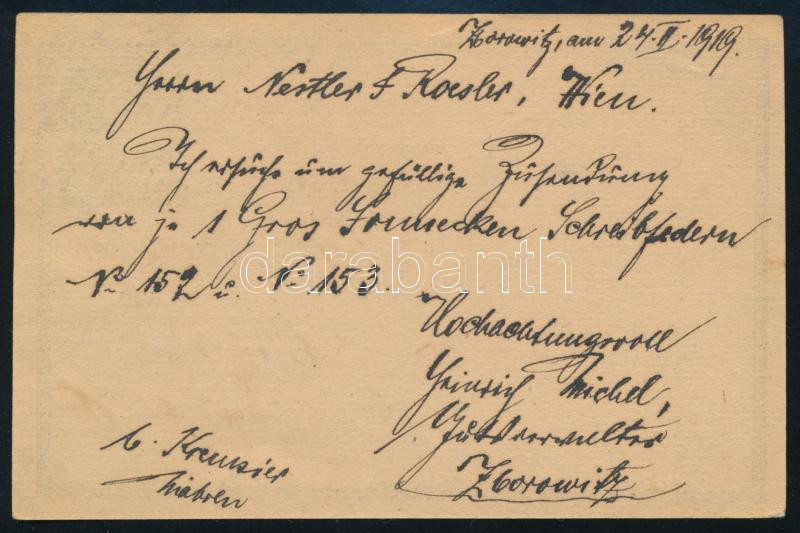 Zborowitz, am 24.II.1919.
Herrn Nestler & Roesler, Wien.
Ich ersuche um gefällige Zusendung
von je 1 Gros Soennecken Schreibfedern
No 152 u. No 153.
Hochachtungsvoll
Heinrich Michel,
Gutsverwalter
Zborowitz
b. Kremsier
Mähren
darabanth